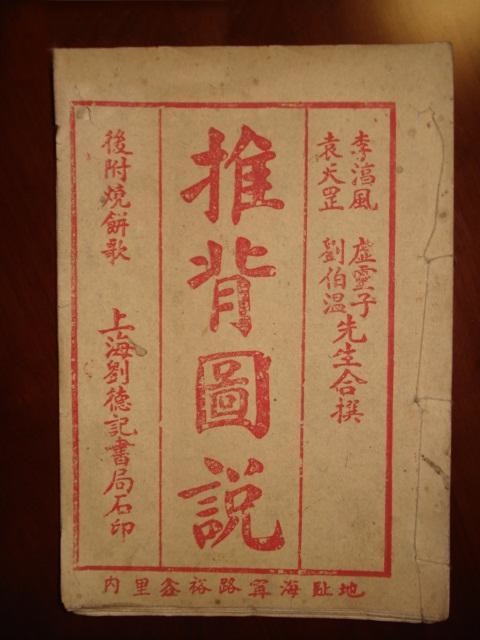 李湻風 虛靈子
袁天罡 劉伯温
先生合撰
推背圖説
後附燒餅歌
上海劉德記書局石印
地趾海甯路裕鑫里內